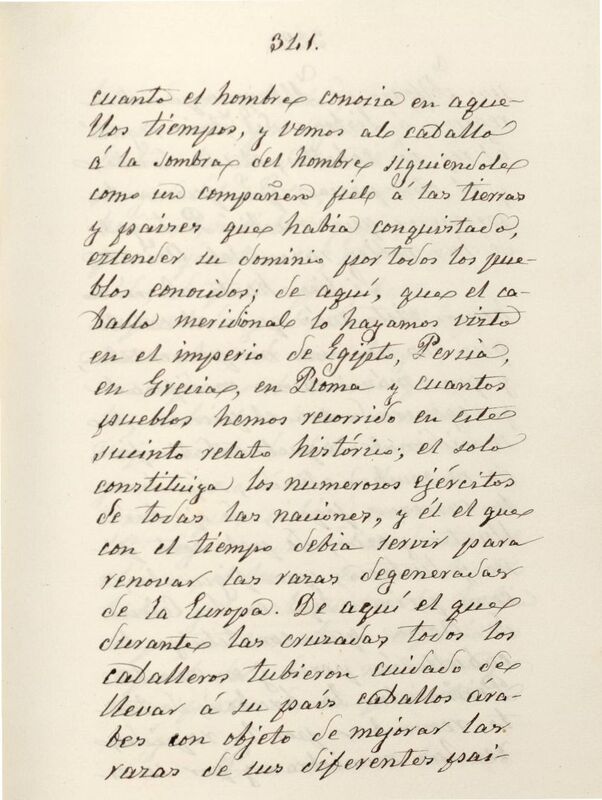 341.
cuanto el hombre conocia en aque-
llos tiempos, y vemos al caballo
á la sombra del hombre siguiendole
como un compañero fiel á las tierras
y paises que habia conquistado,
estender su dominio por todos los pue-
blos conocidos; de aquí, que el ca-
ballo meridional lo hayamos visto
en el imperio de Egipto, Persia,
en Grecia, en Roma y cuantos
pueblos hemos recorrido en este
sucinto relato histórico; el solo
constituiya los numerosos ejércitos
de todas las naciones, y él el que
con el tiempo debia servir para
renovar las razas degeneradas
de la Europa. De aquí el que
durante las cruzadas todos los
caballeros tubieron cuidado de
llevar á su país caballos ára-
bes con objeto de mejorar las
razas de sus diferentes pai-